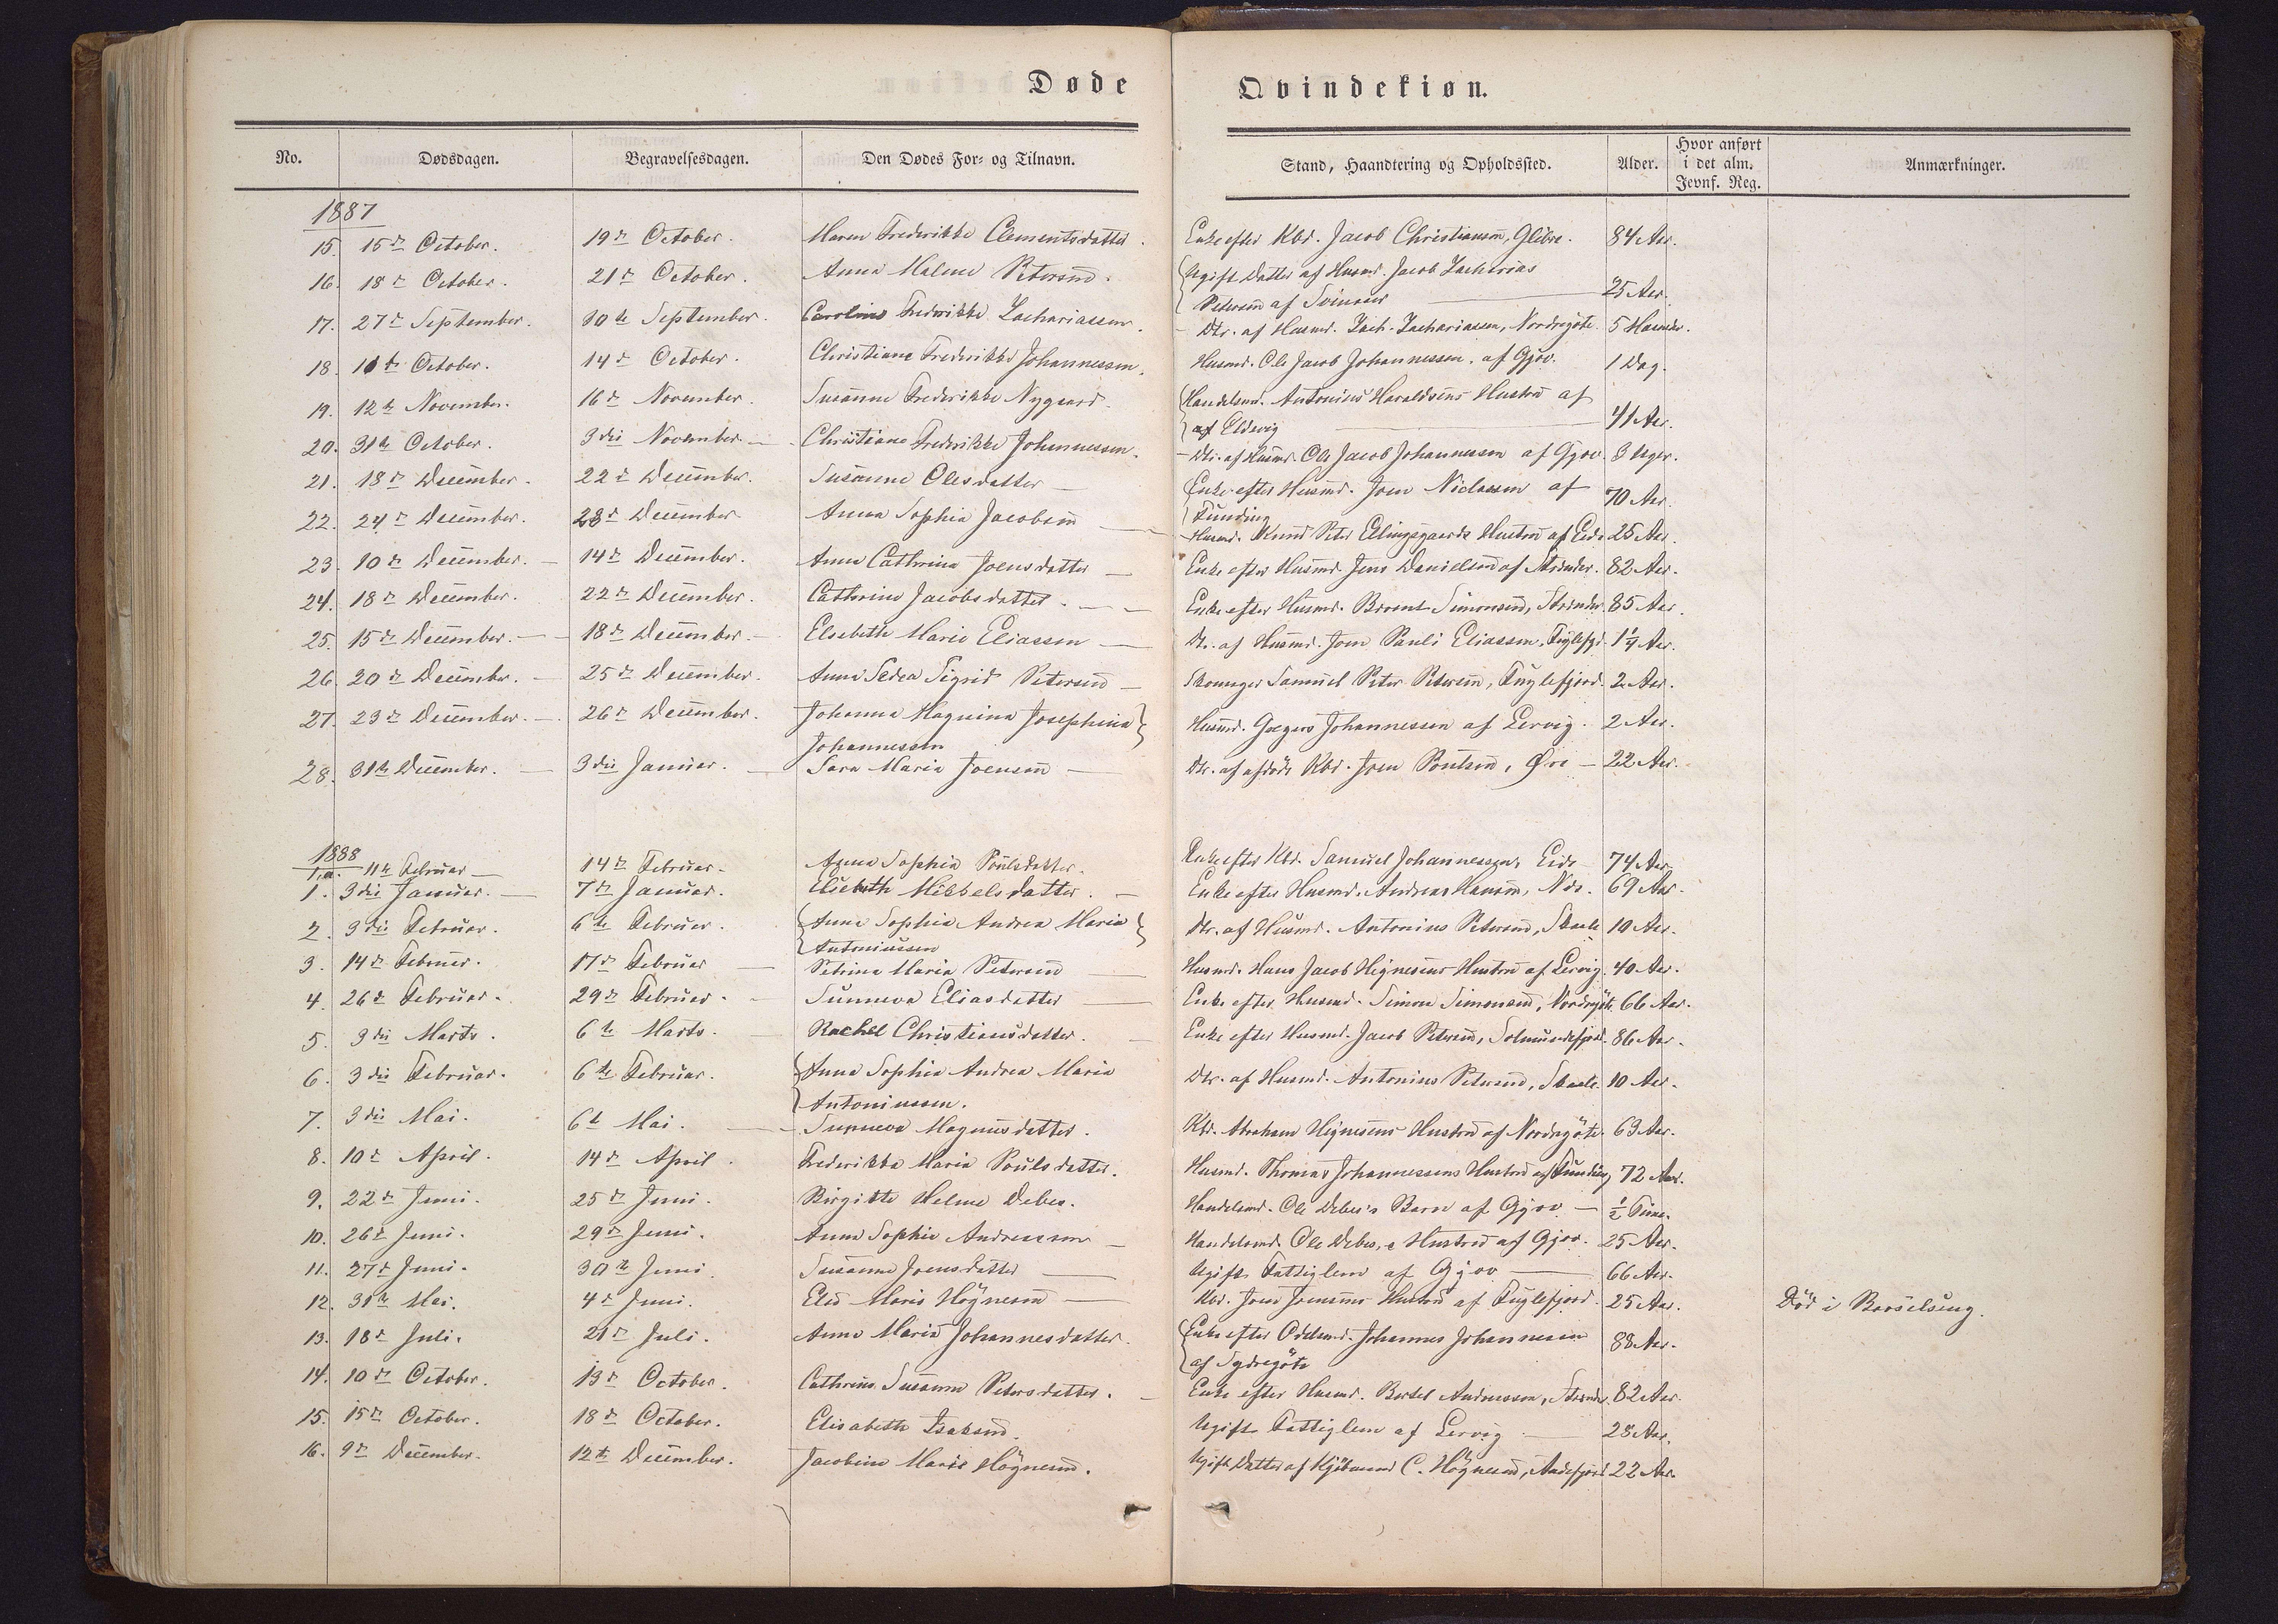 Døde Qvindekiøn.
No. Dødsdagen. Begravelsesdagen. Den Dødes For- og Tilnavn. Stand, Haandtering og Opholdssted. Alder. Hvor anført i det alm. Jevnf. Reg. Anmærkninger.
1887
15. 15de October. 19de October. Maren Frederikke Clementsdatter. Enke efter Kbd. Jacob Christiansen, Glibre. 84 Aar.
16. 18de October. 21de October. Anna Malene Petersen. Ugift Datter af Husmd. Jacob Zacharias
Petersen af Svinaaer 25 Aar.
17. 27de September. 30te September. Caroline Fredrikke Zachariassen. Dtr. af Husmd. Zach. Zachariassen, Nordregöte. 5 Maaneder.
18. 10de October. 14de October. Christiane Frederikke Johannessen. Husmd. Ole Jacob Johannessen af Gjov. 1 Dag.
19. 12te November. 16de November. Susanne Frederikke Nygaard. Handelsmd. Antonius Haraldsens Hustru af
af Eldevig 41 Aar.
20. 31te October. 3die November. Christiane Frederikke Johannessen. Dtr. af Husmd. Ole Jacob Johannessen af Gjov. 3 Uger.
21. 18de December. 22de December. Susanne Olesdatter Enke efter Husmd. Joen Niclassen af 70 Aar.
Funding
22. 24de December. 28de December. Anna Sophia Jacobsen Husmd. Peter Ellingsgaards Hustru af Eide 25 Aar.
23. 10de December. 14de December. Anna Cathrina Joensdatter Enke efter Husmd. Jens Danielsen af Strender. 82 Aar.
24. 18de December. 22de December. Cathrine Jacobsdatter. Enke efter Husmd. Simonsen, Strender 85 Aar.
25. 15de December. 18de December. Elsebeth Marie Eliassen Dtr. af Husmd. Joen Pauli Eliassen, Fuglefjd. 1 1/4 Aar.
26. 20de December. 25de December. Anna Sigrid Petersen Skomager Samuel Peter Petersen, Fuglefjord. 2 Aar.
27. 23de December. 26de December. Johanna Magnina Josephina
Johannessen Husmd. Johannessen af Lervig. 2 Aar.
28. 31te December. 3die Januar. Sara Maria Joensen Dtr. af afdøde Kbd. Joen Poulsen, Øre 22 Aar.
1888
1,a. 11te Februar 14de Februar. Anna Sophia Poulsdatter. Enke efter Kbd. Samuel Johannessen, Eide 74 Aar.
1. 3die Januar. 7de Januar. Elsebeth Mikkelsdatter. Enke efter Husmd. Andreas Hansen, Næs. 69 Aar.
2. 3die Februar. 6te Februar. Anna Sophia Andrea Maria
Antoniussen Dtr. af Husmd. Antonius Petersen, Skaale 10 Aar.
3. 14de Februar. 17de Februar Petrina Maria Petersen Husmd. Hans Jacob Högnesens Hustru af Lervig. 40 Aar.
4. 26de Februar. 29de Februar. Sunneva Eliasdatter Enke efter Husmd. Simon Simonsen, Nordregöte. 66 Aar.
5. 3die Marts. 6te Marts. Rachel Christiansdatter. Enke efter Husmd. Jacob Petersen, Solmundefjord. 86 Aar.
6. 3die Februar. 6te Februar. Anna Sophia Andrea Maria
Antoniussen. Dtr. af Husmd. Antonius Petersen, Skaale. 10 Aar.
7. 3die Mai. 6te Mai. Sunneva Magnusdatter. Kbd. Abraham Högnesens Hustru af Nordregöte. 63 Aar.
8. 10de April. 14de April. Frederikka Maria Poulsdatter. Husmd. Thomas Johannessens Hustru af Funding 72 Aar.
9. 22de Juni. 25de Juni. Birgitte Helene Debes. Handelsmd. Ole Debes's Barn af Gjov 1/2 Time.
10. 26de Juni. 29de Juni. Anna Sophie Andreassen Handelsmd. Ole Debes,s Hustru af Gjov. 25 Aar.
11. 27de Juni. 30te Juni. Susanne Joensdatter Ugift Fattiglem af Gjov 66 Aar.
12. 31te Mai. 4de Juni. Else Maria Högnesen Kbd. Joen Joensens Hustru af Fuglefjord. 25 Aar. Död i Barselseng.
13. 18de Juli. 21de Juli. Anna Maria Johannesdatter. Enke efter Odelsmd. Johannes Johannesen
af Sydregöte 88 Aar.
14. 10de October. 13de October. Cathrine Susanne Petersdatter. Enke efter Husmd. Bertel Andreassen, Strender 82 Aar.
15. 15de October. 18de October. Elisabeth Isaksen. Ugift Fattiglem af Lervig 28 Aar.
16. 9de December. 12te December. Jacobine Marie Högnesen. Ugift Datter af Kjöbmand C. Högnesen, Andefjord 22 Aar.